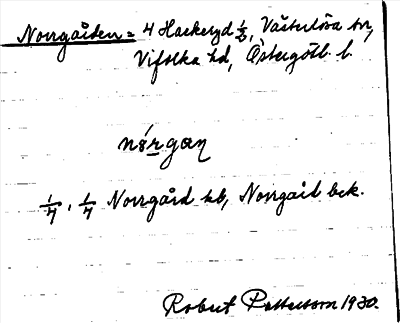 Norrgården = 4 Hackeryd 1/3, Västerlösa sn,
Vifolka hd, Östergötl. l.
nǿrgan
1/4, 1/4 Norrgård kb, Norrgård bck.
Robert Pettersson 1930.